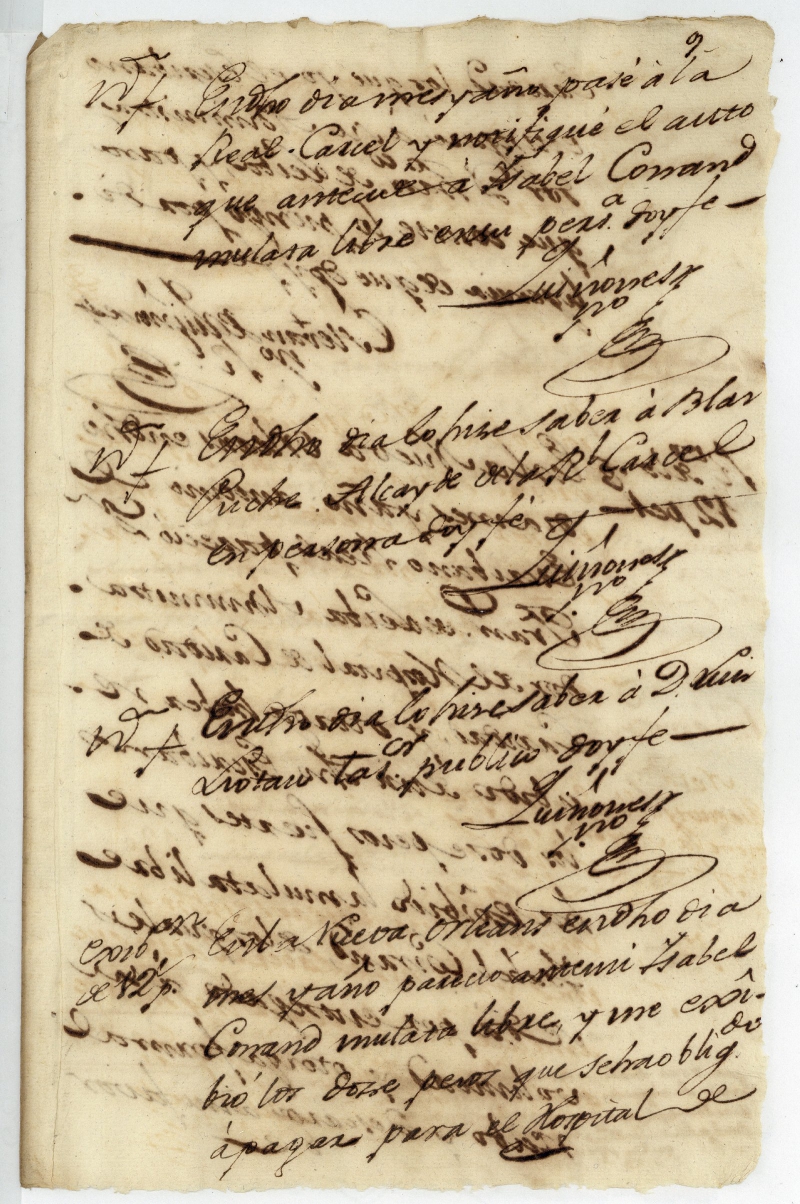 9
Nt.f. En dho dia mes y año pasé à la
Real Carcel y notifiqué el autto
que antecede à Ysabel Conrand
mulata libre en su persa. doyfe
Quiñones
no
Nt.f. En dho dia lo hise saber à Blas
Puche Alcayde de la Rl Carcel
en persona doyfé
Quiñones
no
Nt.f. En dho dia lo hise saber à Dn Luis
Liotau Tasor publico doyfe
Quiñones
no
exivon. En la Nueva Orleans en dho dia
de 12 p. mes y año parecio ante mi Ysabel
Conrand mulata libre, y me exî-
bió los dose pesos que se ha obligdo
à pagar para el Hospital de